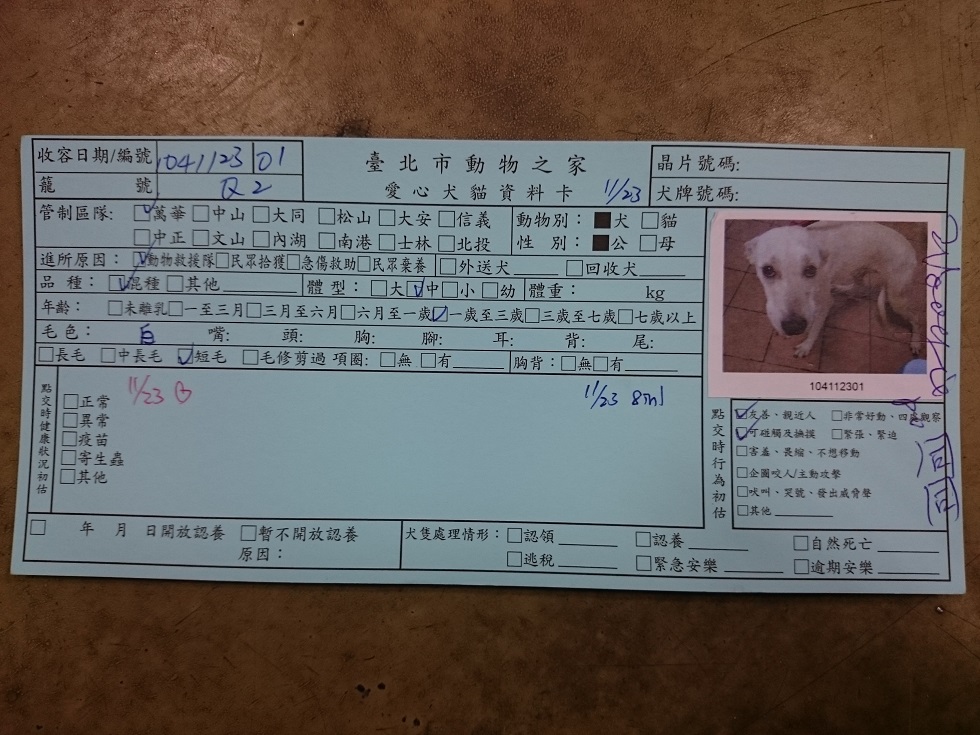 收容日期/編號 1041123 01
籠 號 Q2
臺北市動物之家
愛心犬貓資料卡 11/23
晶片號碼:
犬牌號碼:
管制區隊: ☑萬華 □中山 □大同 □松山 □大安 □信義
□中正 □文山 □內湖 □南港 □士林 □北投
動物別: ■犬 □貓
性 別: ■公 □母
進所原因: ☑動物救援隊 □民眾拾獲 □急傷救助 □民眾棄養 □外送犬 □回收犬
品 種: ☑混種 □其他 體 型: □大 ☑中 □小 □幼 體重: kg
年齡: □未離乳 □一至三月 □三月至六月 □六月至一歲 ☑一歲至三歲 □三歲至七歲 □七歲以上
毛色: 白 嘴: 頭: 胸: 腳: 耳: 背: 尾:
□長毛 □中長毛 ☑短毛 □毛修剪過 項圈: □無 □有 胸背: □無 □有
104112301
點交時健康狀況初估
11/23
11/23
□正常
□異常
□疫苗
□寄生蟲
□其他
點交時行為初估
☑友善、親近人 □非常好動、四處觀察
☑可碰觸及撫摸 □緊張、緊迫
□害羞、畏縮、不想移動
□企圖咬人/主動攻擊
□吠叫、哭號、發出威脅聲
□其他
□ 年 月 日開放認養 □暫不開放認養
原因:
犬隻處理情形: □認領 □認養 □自然死亡
□逃脫 □緊急安樂 □逾期安樂